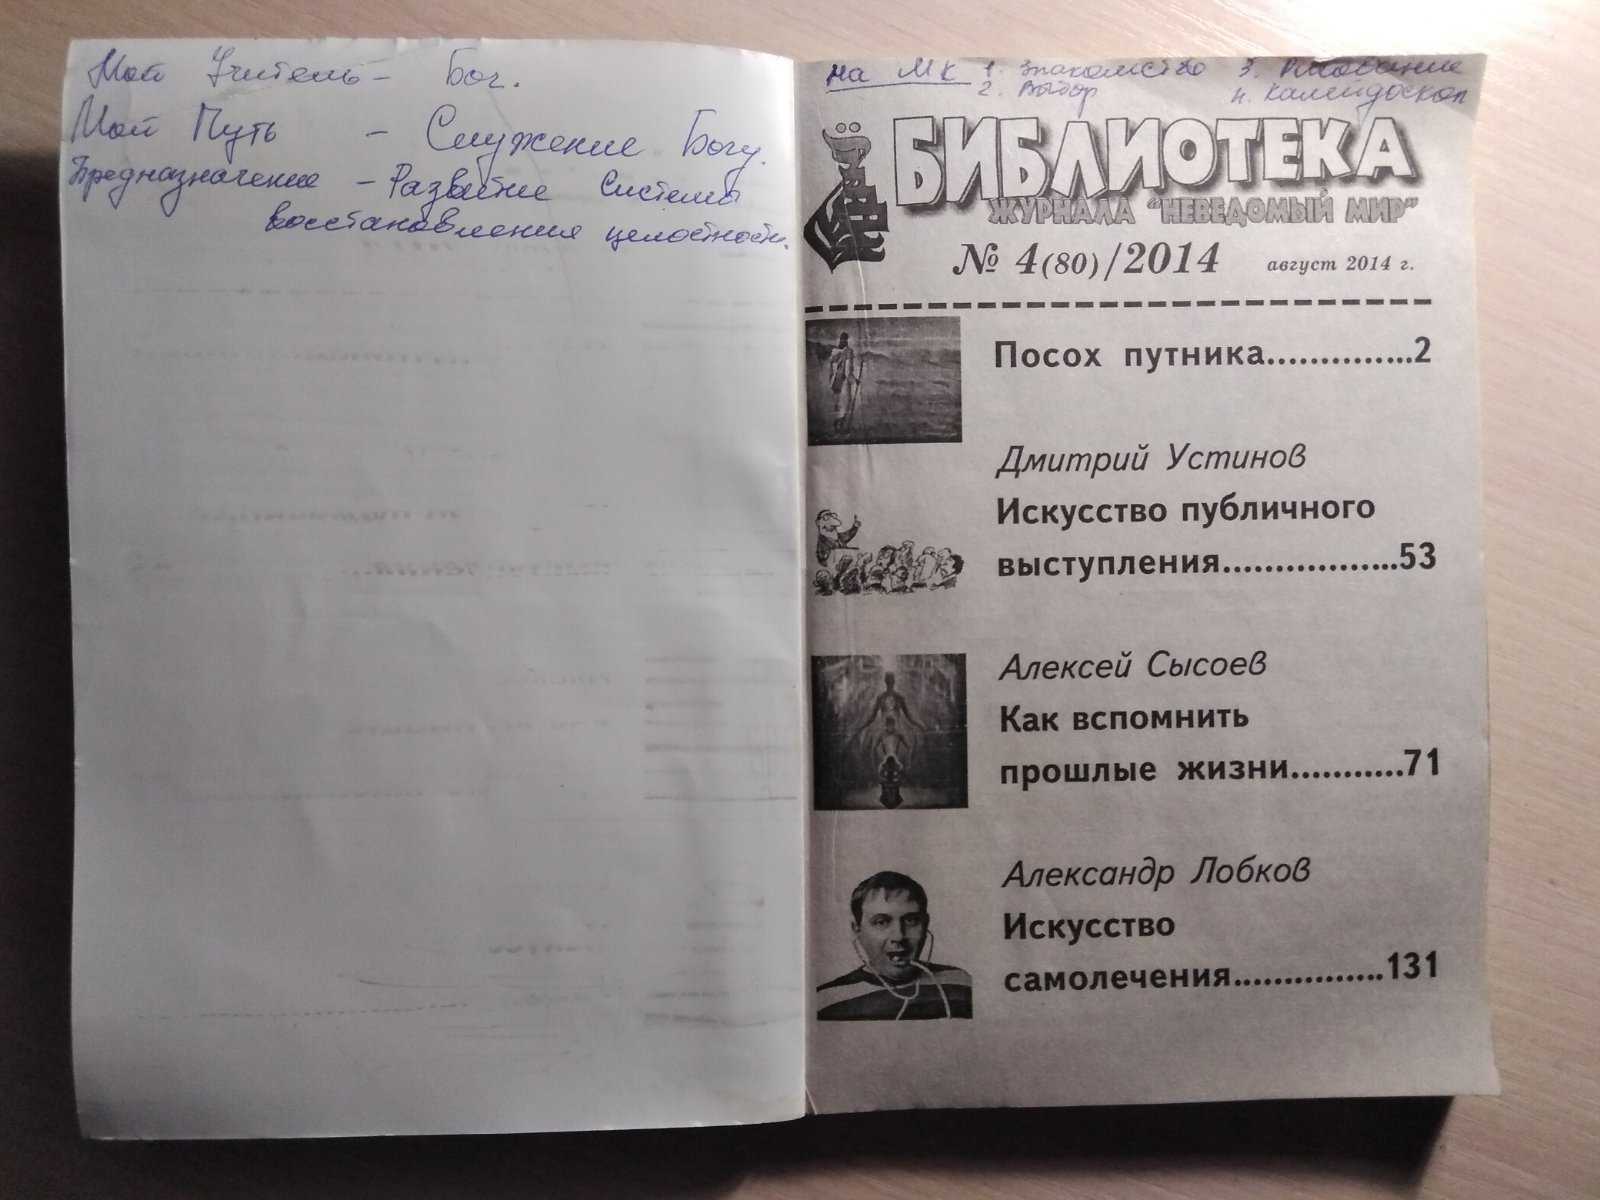 Мой Учитель - Бог.
Мой Путь - Служение Богу.
Предназначение - Развитие Системы
восстановления целостности.
на МК 1. Знакомство 3. Рисование
2. Выбор 4. Калейдоскоп
БИБЛИОТЕКА
ЖУРНАЛА "НЕВЕДОМЫЙ МИР"
№ 4(80)/2014 август 2014 г.
Посох путника..............2
Дмитрий Устинов
Искусство публичного
выступления.................53
Алексей Сысоев
Как вспомнить
прошлые жизни...........71
Александр Лобков
Искусство
самолечения...............131